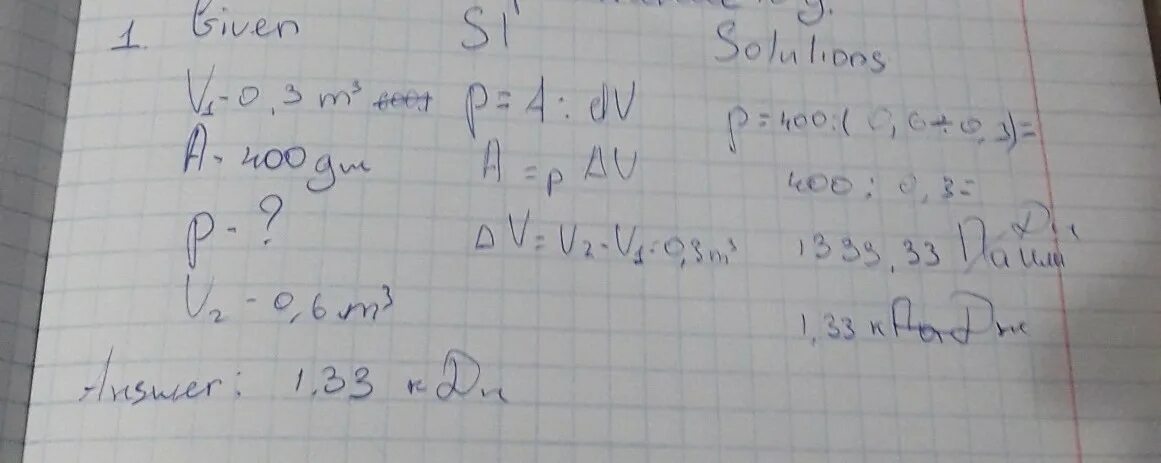 1. Given
V₁ - 0,3 m³
A - 400 gm
p - ?
V₂ - 0,6 m³
SI
p = A : dV
A = p ΔV
ΔV = V₂ - V₁ = 0,3 m³
Solutions
p = 400 : ( 0,6 - 0,3 ) =
400 : 0,3 =
1333,33 Па или Дж
1,33 к Дж
Answer: 1.33 к Дж